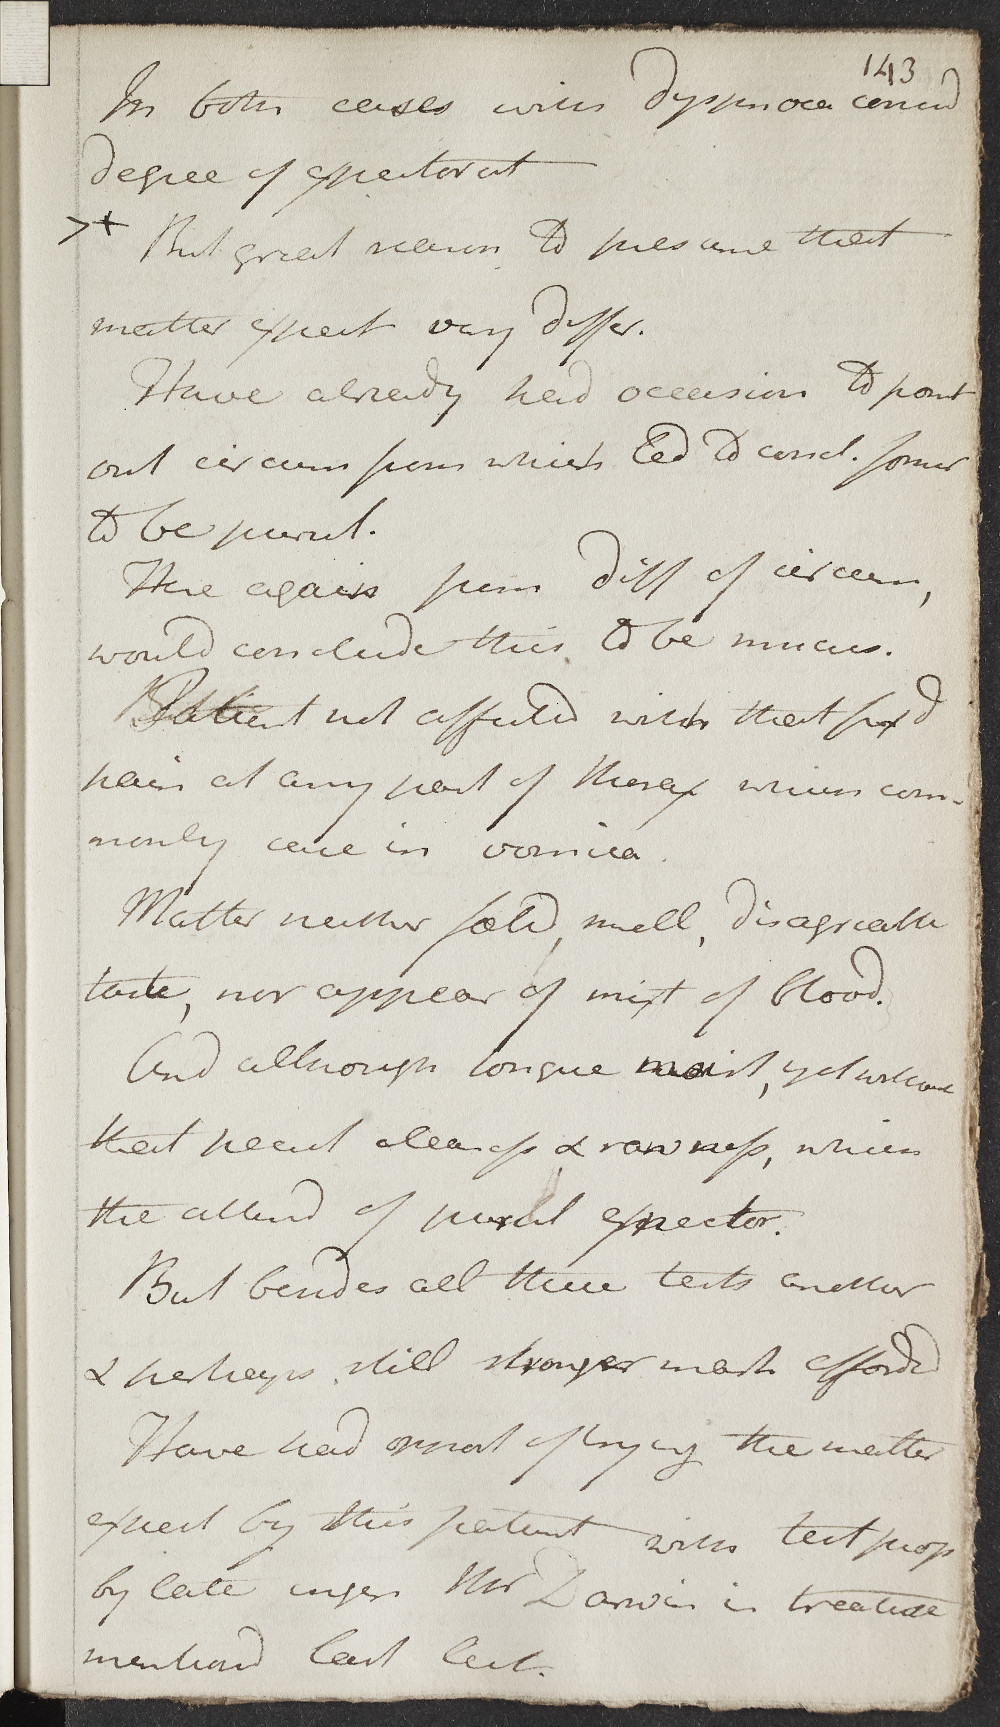 143
In both cases with Dyspnoea consid
degree of expectorat
>+ But great reason to presume that
matter expect very differ.
Have already had occasion to point
out circum from which led to concl. former
to be purul.
Here again from diff of circum,
would conclude this to be mucus.
Patient not affected with that fixd
pain at any part of thorax which com-
monly case in vomica.
Matter neither foetid smell, disagreable
taste, nor appear of mixt of blood.
And although tongue moist, yet without
that pecul cleaness & rawness, which
the attend of purul expector.
But besides all these tests another
& perhaps still stronger mark afford
Have had opport of trying the matter
expect by this patient with test prop
by late ingen Mr Darwin in treatise
mentiond last lect.